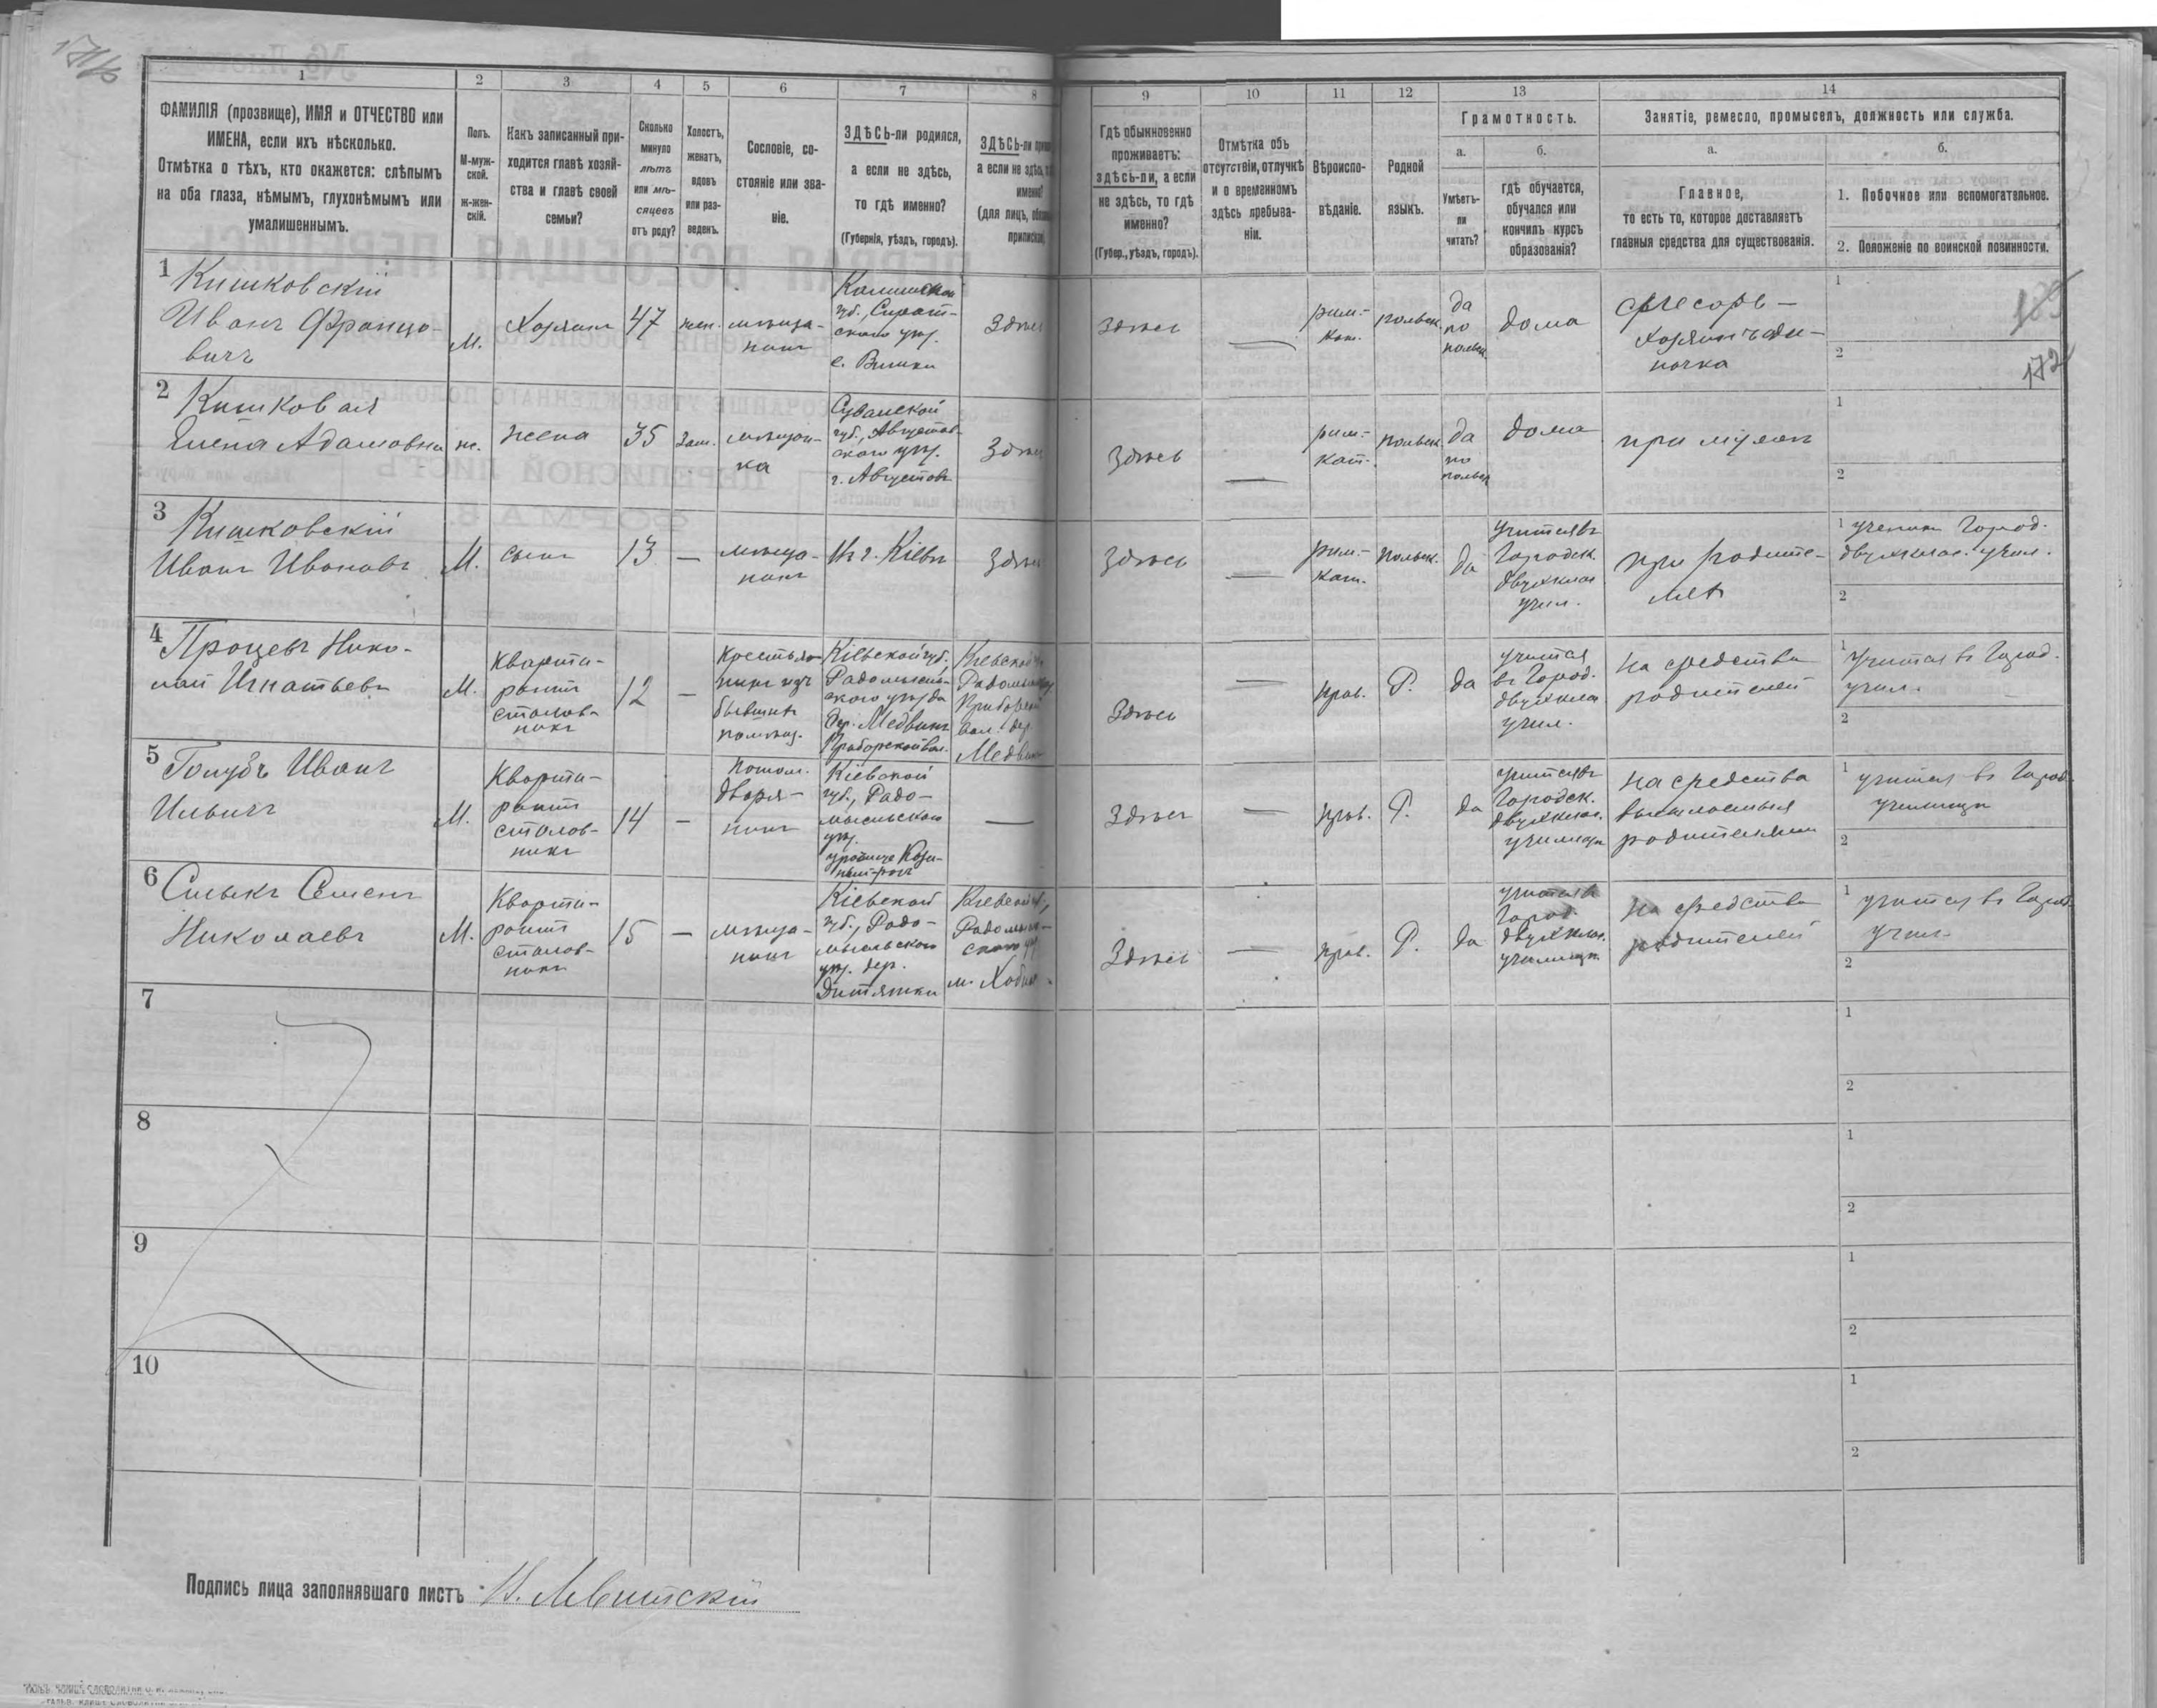 1
ФАМИЛІЯ (прозвище), ИМЯ и ОТЧЕСТВО или
ИМЕНА, если ихъ нѣсколько.
Отмѣтка о тѣхъ, кто окажется: слѣпымъ
на оба глаза, нѣмымъ, глухонѣмымъ или
умалишеннымъ.
2
Полъ.
М-муж-
ской.
ж-жен-
скій.
3
Какъ записанный при-
ходится главѣ хозяй-
ства и главѣ своей
семьи?
4
Сколько
минуло
лѣтъ
или мѣ-
сяцевъ
отъ роду?
5
Холостъ,
женатъ,
вдовъ
или раз-
веденъ.
6
Сословіе, со-
стояніе или зва-
ніе.
7
ЗДѢСЬ-ли родился,
а если не здѣсь,
то гдѣ именно?
(Губернія, уѣздъ, городъ).
8
ЗДѢСЬ-ли
а если не здѣсь,
именно?
(для лицъ,
9
Гдѣ обыкновенно
проживаетъ:
здѣсь-ли, а если
не здѣсь, то гдѣ
именно?
(Губер., уѣздъ, городъ).
10
Отмѣтка объ
отсутствіи, отлучкѣ
и о временномъ
здѣсь пребыва-
ніи.
11
Вѣроиспо-
вѣданіе.
12
Родной
языкъ.
13
Грамотность.
а.
Умѣетъ-
ли
читать?
б.
гдѣ обучается,
обучался или
кончилъ курсъ
образованія?
14
Занятіе, ремесло, промыселъ, должность или служба.
а.
Главное,
то есть то, которое доставляетъ
главныя средства для существованія.
б.
1. Побочное или вспомогательное.
2. Положеніе по воинской повинности.
1
Кишковскій
Иванъ Францо-
вичъ
М.
Хозяинъ
47
жен.
мѣща-
нинъ
губ.,
скаго уѣз.
с.
Здѣсь
Здѣсь
—
рим.-
кат.
польск.
да
по
польск.
дома
слесарь –
хозяинъ оди-
ночка
1
2
172
2
Кишковая
Елена Адамовна
ж.
жена
35
зам.
мѣщан-
ка
Сувалской
губ., Августов-
скаго уѣз.
г. Августовъ
Здѣсь
Здѣсь
—
рим.-
кат.
польск.
да
по
польск.
дома
при мужѣ
1
2
3
Кишковскій
Иванъ Ивановъ
М.
сынъ
13
—
мѣща-
нинъ
Въ г. Кіевѣ
Здѣсь
Здѣсь
—
рим.-
кат.
польск.
да
учится въ
Городск.
двухклас.
учил.
при родите-
лѣ
1 ученикъ Город.
двухклас. учил.
2
4
Процевъ Нико-
лай Игнатьевъ
М.
Кварти-
рантъ
столов-
никъ
12
—
Крестья-
нинъ изъ
бывшихъ
помѣщ.
Кіевской губ.
Радомысль-
скаго уѣзда
дер. Медвинъ
Кіевской
Вол. дер.
Медвинъ
Здѣсь
—
прав.
Р.
да
учится
въ Город.
двухклас
учил.
на средства
родителей
1 учится въ Город.
учил.
2
5
Голубъ Иванъ
Ильичъ
М.
Кварти-
рантъ
столов-
никъ
14
—
потом.
дворя-
нинъ
Кіевской
губ., Радо-
мысльскаго
уѣз.
—
Здѣсь
—
прав.
Р.
да
учится въ
Городск.
двухклас.
училищѣ
на средства
высылаемыя
родителями
1 учится въ Город.
училищѣ
2
6
Силыкъ Семенъ
Николаевъ
М.
Кварти-
рантъ
столов-
никъ
15
—
мѣща-
нинъ
Кіевской
губ., Радо-
мысльскаго
уѣз. дер.
Дитятки
Кіевской г.,
Радомысль-
скаго уѣз.
м.
Здѣсь
—
прав.
Р.
да
учится въ
Город.
двухклас.
училищѣ
на средства
родителей
1 учится въ Город.
учил.
2
7
1
2
8
1
2
9
1
2
10
1
2
Подпись лица заполнявшаго листъ